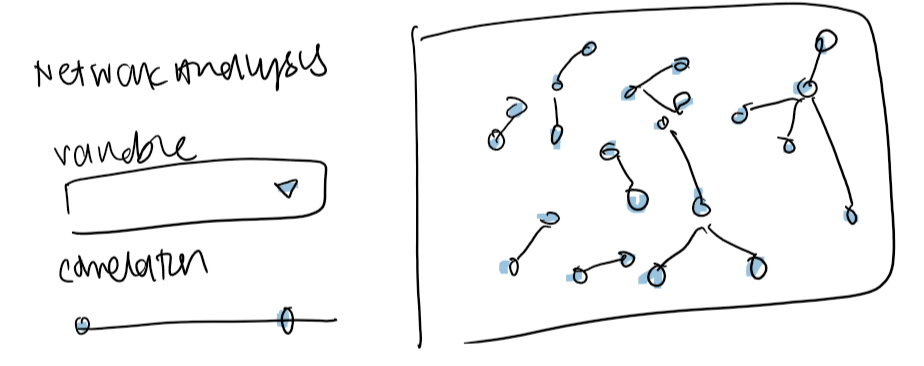 Network Analysis
variable
correlation